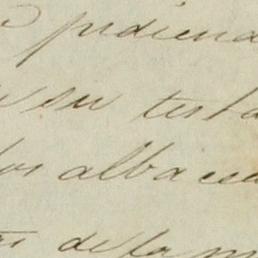 pidiend
su testa
los albacea
de la m